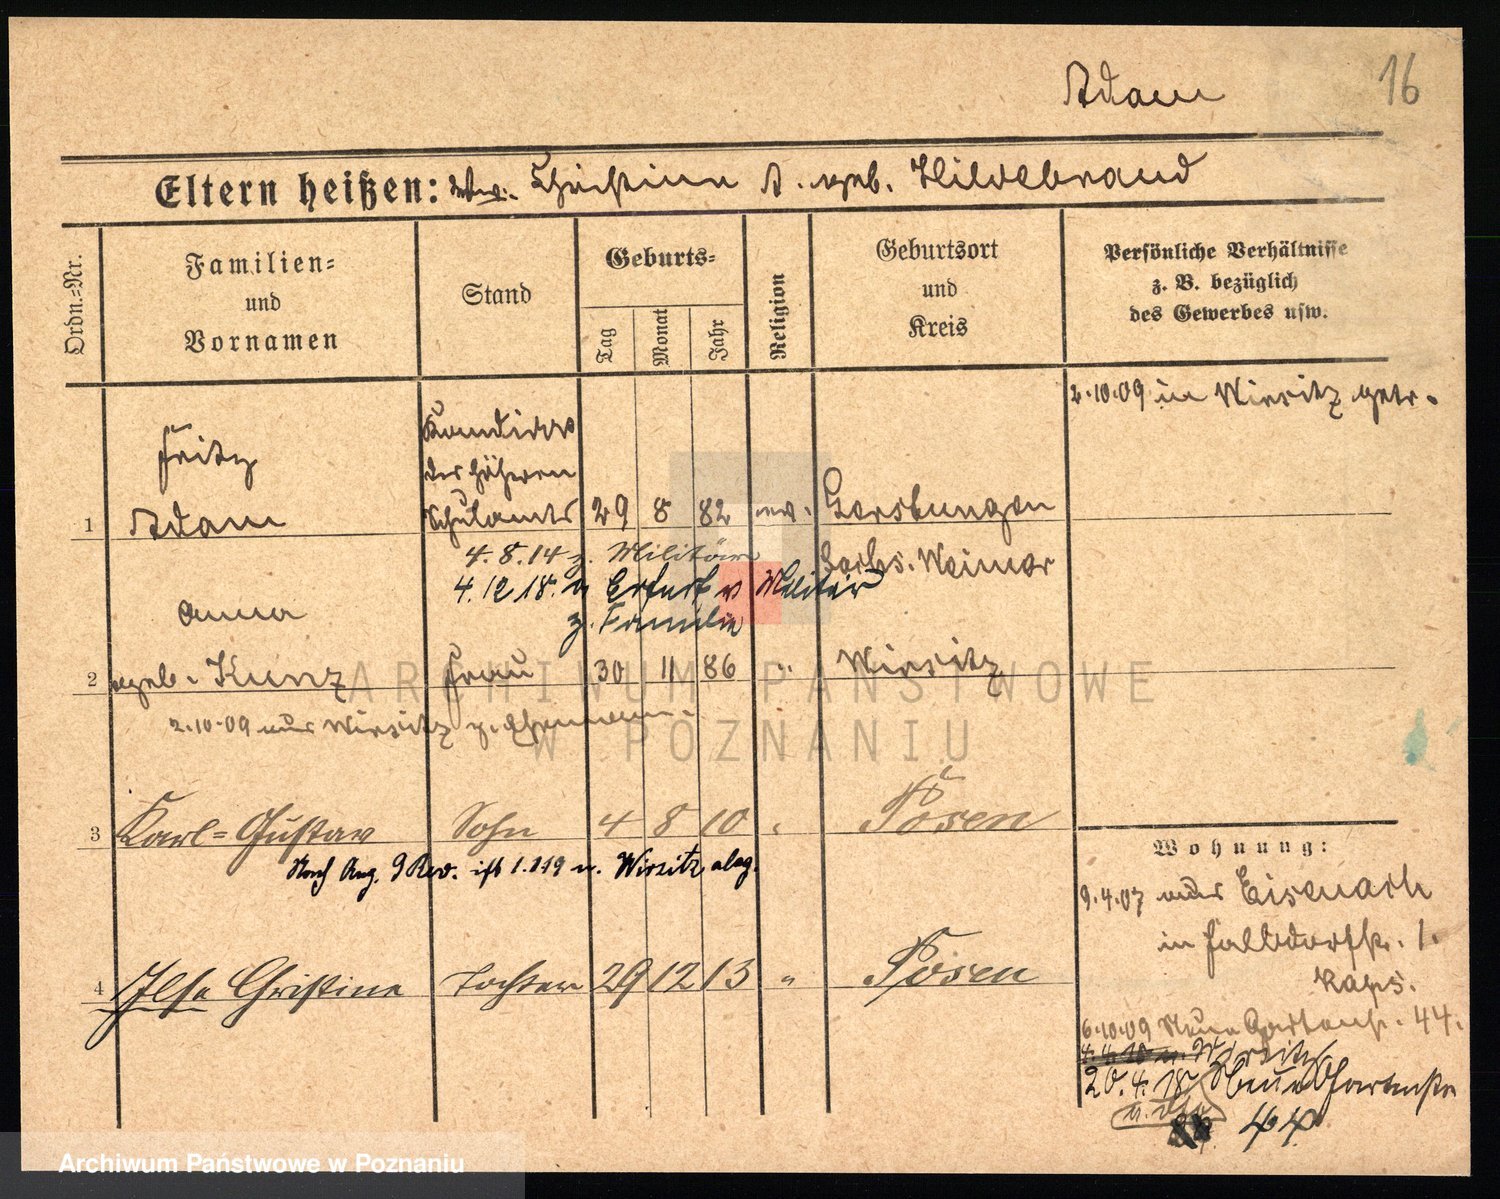 Adam
16
Eltern heißen: Wwe. Christine A. geb. Hildebrand
Ordn.=Nr.
Familien=
und
Vornamen
Stand
Geburts=
Tag
Monat
Jahr
Religion
Geburtsort
und
Kreis
Persönliche Verhältnisse
z. B. bezüglich
des Gewerbes usw.
2.10.09 in Wirsitz getr.
Fritz
Kandidat
des höheren
1 Adam Schulamts 29 8 82 ev. Gerstungen
4.8.14 z. Militär
Sachs. Weimar
4.12.18. v Erfurt v Militär
z. Familie
Anna
2 geb. Kunz Frau 30 11 86 " Wirsitz
2.10.09 aus Wirsitz z. Ehemann.
3 Karl=Gustav Sohn 4 8 10 " Posen
Nach Ang. Rev. ist 1.1.19 n. Wirsitz abg.
4 Ilse Christine Tochter 29 12 13 " Posen
Wohnung:
9.4.07 aus Eisenach
in 1.
6.10.09 Neue Gartenstr. 44.
n. Wirsitz
20.4.18 Neue Gartenstr
44
ARCHIWUM PAŃSTWOWE
W POZNANIU
Archiwum Państwowe w Poznaniu